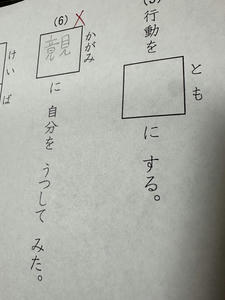 (5) 行動を にする。
とも
(6) に 自分を うつして みた。
かがみ
けいば